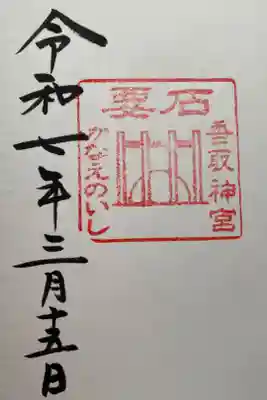 令和七年三月十五日
要石
香取神宮
かなえのいし